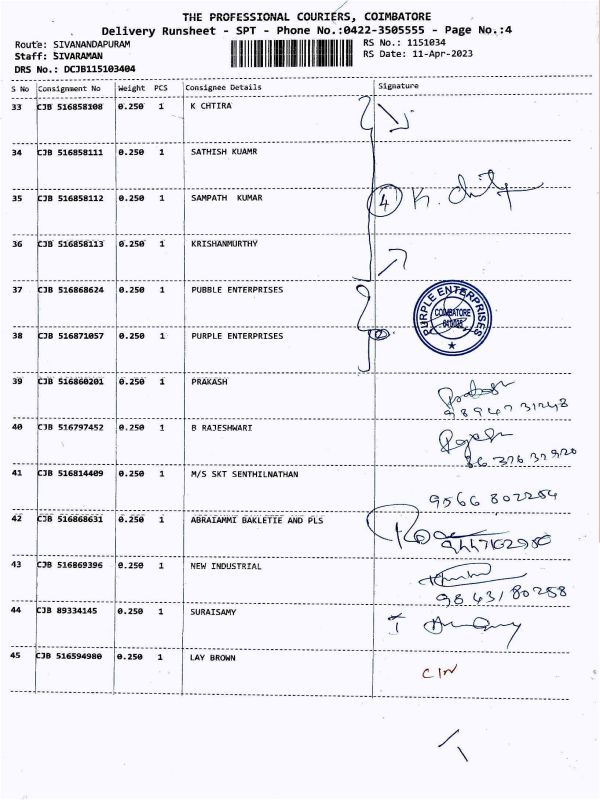 THE PROFESSIONAL COURIERS, COIMBATORE
Delivery Runsheet - SPT - Phone No.:0422-3505555 - Page No.:4
Route: SIVANANDAPURAM RS No.: 1151034
Staff: SIVARAMAN RS Date: 11-Apr-2023
DRS No.: DCJB115103404
S No Consignment No Weight PCS Consignee Details Signature
33 CJB 516858108 0.250 1 K CHTIRA
34 CJB 516858111 0.250 1 SATHISH KUAMR
35 CJB 516858112 0.250 1 SAMPATH KUMAR 4
36 CJB 516858113 0.250 1 KRISHANMURTHY
37 CJB 516868624 0.250 1 PUBBLE ENTERPRISES
PURPLE ENTERPRISES
COIMBATORE
38 CJB 516871057 0.250 1 PURPLE ENTERPRISES 2
39 CJB 516860201 0.250 1 PRAKASH
40 CJB 516797452 0.250 1 B RAJESHWARI
41 CJB 516814409 0.250 1 M/S SKT SENTHILNATHAN
9566 802254
42 CJB 516868631 0.250 1 ABRAIAMMI BAKLETIE AND PLS
9447102950
43 CJB 516869396 0.250 1 NEW INDUSTRIAL
98431 80258
44 CJB 89334145 0.250 1 SURAISAMY
45 CJB 516594980 0.250 1 LAY BROWN
CIN